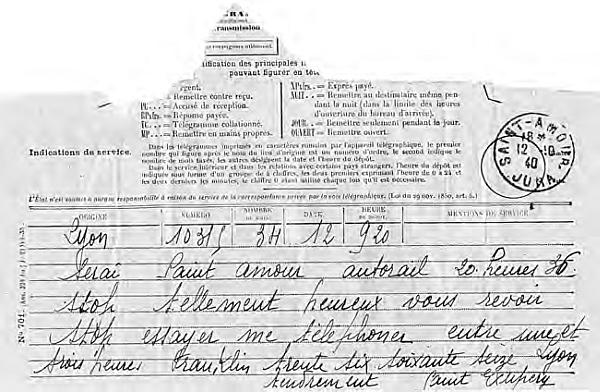 RA
ransmission
ification des principales i
pouvant figurer en tê
rgent.
Remettre contre reçu.
PC... = Accusé de réception.
RPx frs. = Réponse payée.
TC... = Télégramme collationné.
MP... = Remettre en mains propres.
XPx frs. = Exprès payé.
NUIT.. = Remettre au destinataire même pendant
la nuit (dans la limite des heures
d'ouverture du bureau d'arrivée).
JOUR.. = Remettre seulement pendant le jour.
OUVERT = Remettre ouvert.
Indications de service.
Dans les télégrammes imprimés en caractères romains par l'appareil télégraphique, le premier
nombre qui figure après le nom du lieu d'origine est un numéro d'ordre, le second indique le
nombre de mots taxés, les autres désignent la date et l'heure de dépôt.
Dans le service intérieur et dans les relations avec certains pays étrangers, l'heure de dépôt est
indiquée sous forme d'un groupe de 4 chiffres, les deux premiers exprimant l'heure de 0 à 24 et
les deux derniers les minutes, le chiffre 0 étant utilisé chaque fois qu'il est nécessaire.
SAINT-AMOUR
18 *
12 - 10
40
JURA
L'État n'est soumis à aucune responsabilité à raison du service de la correspondance privée par la voie télégraphique. (Loi du 29 nov. 1850, art. 6.)
ORIGINE NUMÉRO NOMBRE DE MOTS DATE HEURE DE DÉPÔT MENTIONS DE SERVICE
Lyon 10315 34 12 920
Serai Saint amour autorail 20 heures 36.
stop tellement heureux vous revoir
stop essayer me téléphoner entre une et
trois heures Franklin trente six soixante seize Lyon
tendrement Saint Exupéry
N° 701.